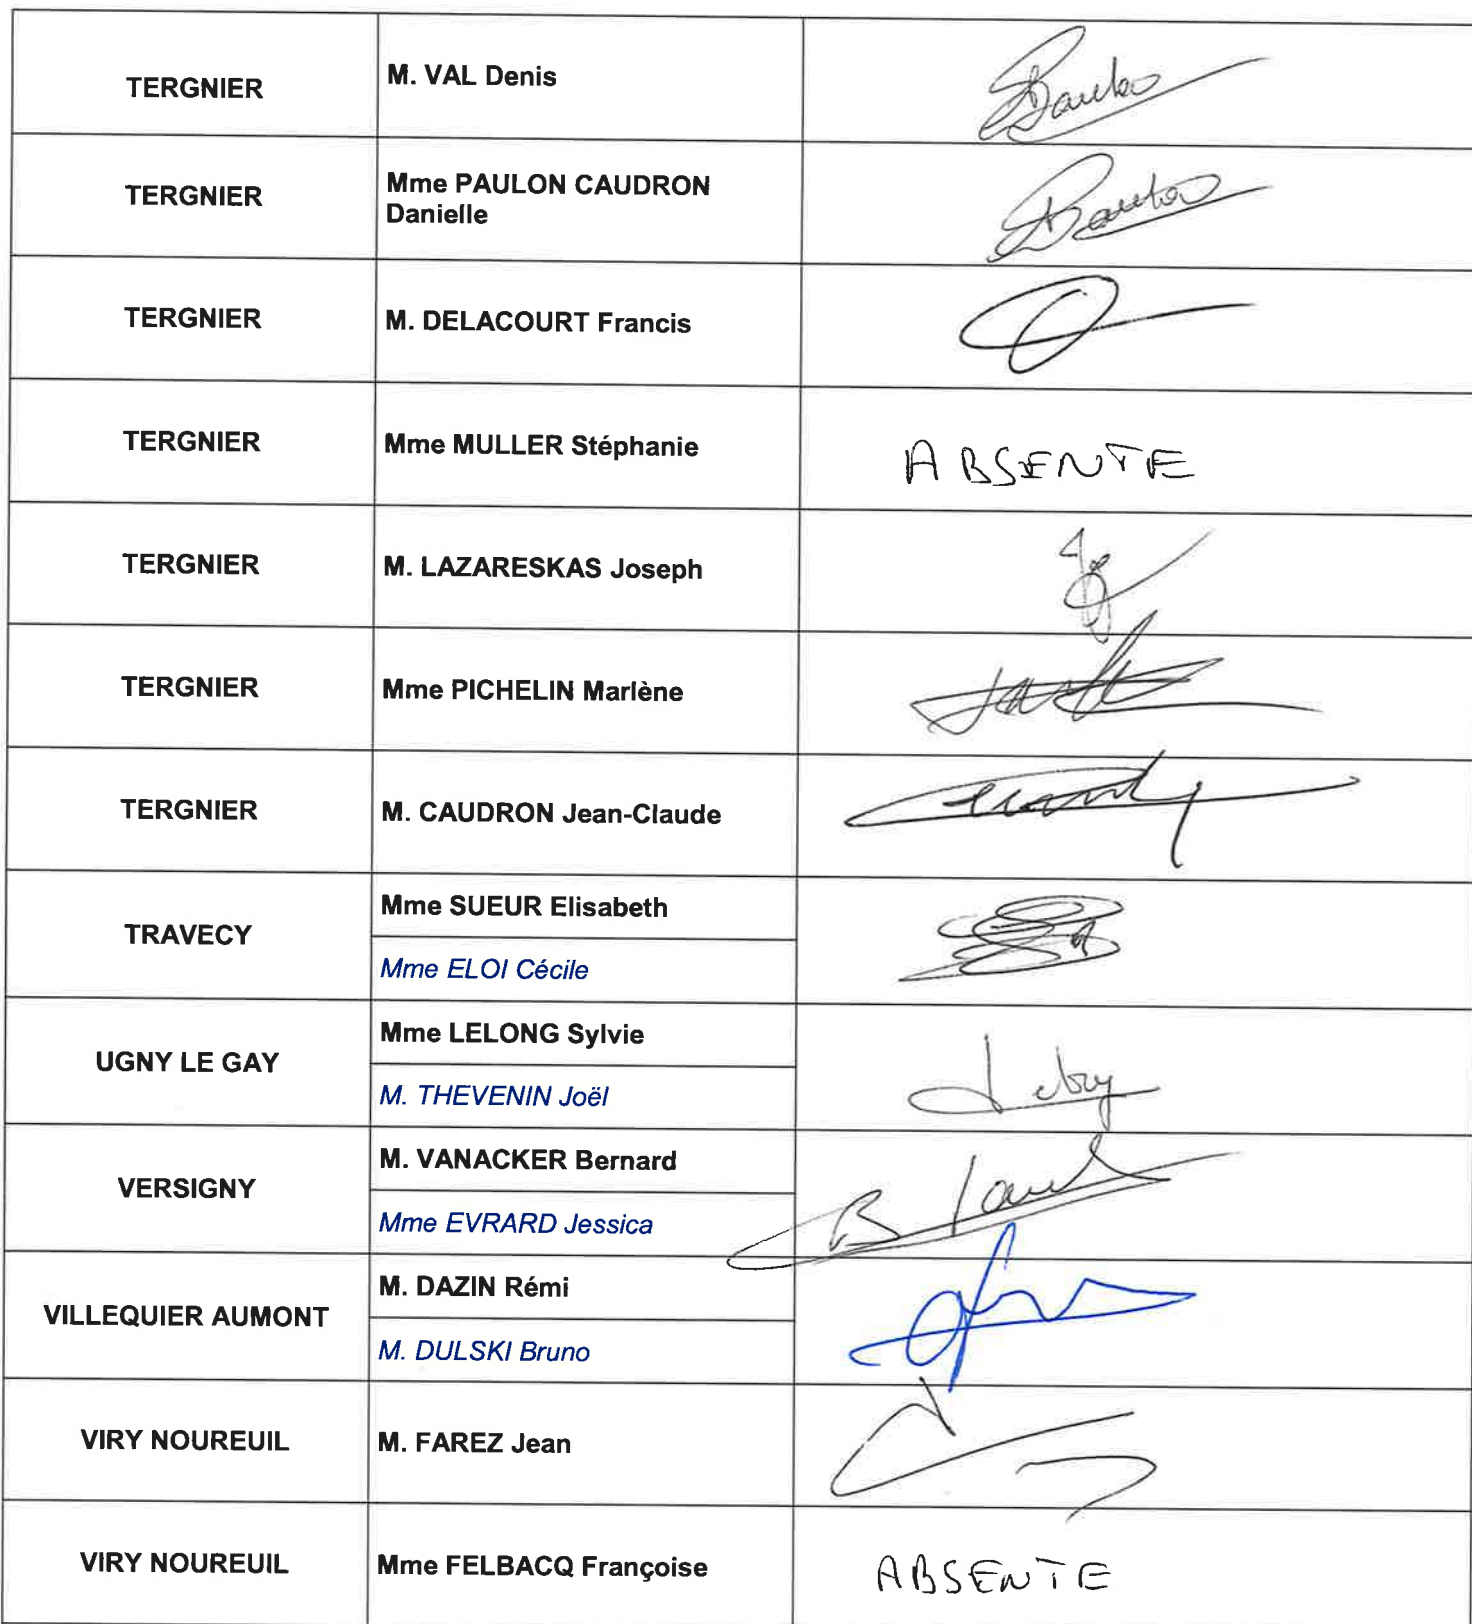 TERGNIER
M. VAL Denis
TERGNIER
Mme PAULON CAUDRON
Danielle
TERGNIER
M. DELACOURT Francis
TERGNIER
Mme MULLER Stéphanie
ABSENTE
TERGNIER
M. LAZARESKAS Joseph
TERGNIER
Mme PICHELIN Marlène
TERGNIER
M. CAUDRON Jean-Claude
TRAVECY
Mme SUEUR Elisabeth
Mme ELOI Cécile
UGNY LE GAY
Mme LELONG Sylvie
M. THEVENIN Joël
VERSIGNY
M. VANACKER Bernard
Mme EVRARD Jessica
VILLEQUIER AUMONT
M. DAZIN Rémi
M. DULSKI Bruno
VIRY NOUREUIL
M. FAREZ Jean
VIRY NOUREUIL
Mme FELBACQ Françoise
ABSENTE